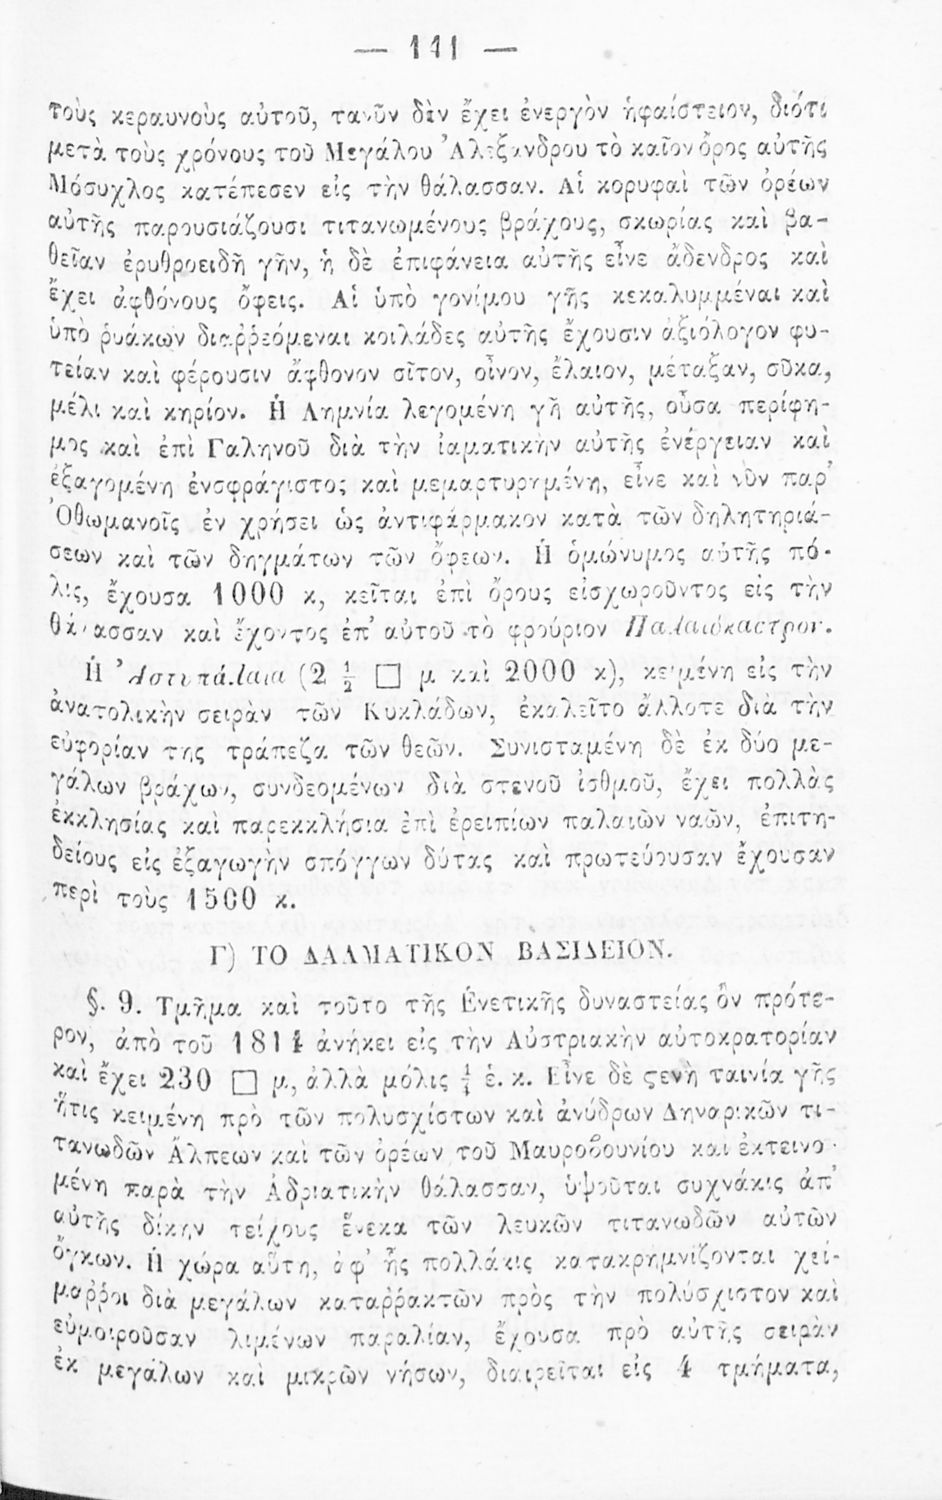 — 141 —
τοὺς κεραυνοὺς αὐτοῦ, τανῦν δὲν ἔχει ἐνεργὸν ἡφαίστειον, διότι
μετὰ τοὺς χρόνους τοῦ Μεγάλου Ἀλεξάνδρου τὸ καῖον ὄρος αὐτῆς
Μόσυχλος κατέπεσεν εἰς τὴν θάλασσαν. Αἱ κορυφαὶ τῶν ὀρέων
αὐτῆς παρουσιάζουσι τιτανωμένους βράχους, σκωρίας καὶ βα-
θεῖαν ἐρυθροειδῆ γῆν, ἡ δὲ ἐπιφάνεια αὐτῆς εἶνε ἄδενδρος καὶ
ἔχει ἀφθόνους ὄφεις. Αἱ ὑπὸ γονίμου γῆς κεκαλυμμέναι καὶ
ὑπὸ ῥυάκων διαῤῥεόμεναι κοιλάδες αὐτῆς ἔχουσιν ἀξιόλογον φυ-
τείαν καὶ φέρουσιν ἄφθονον σῖτον, οἶνον, ἔλαιον, μέταξαν, σῦκα,
μέλι καὶ κηρίον. Ἡ Λημνία λεγομένη γῆ αὐτῆς, οὖσα περίφη-
μος καὶ ἐπὶ Γαληνοῦ διὰ τὴν ἰαματικὴν αὐτῆς ἐνέργειαν καὶ
ἐξαγομένη ἐνσφράγιστος καὶ μεμαρτυρημένη, εἶνε καὶ νῦν παρ'
Ὀθωμανοῖς ἐν χρήσει ὡς ἀντιφάρμακον κατὰ τῶν δηλητηριά-
σεων καὶ τῶν δηγμάτων τῶν ὄφεων. Ἡ ὁμώνυμος αὐτῆς πό-
λις, ἔχουσα 1000 κ, κεῖται ἐπὶ ὄρους εἰσχωροῦντος εἰς τὴν
θάλασσαν καὶ ἔχοντος ἐπ' αὐτοῦ τὸ φρούριον Παλαιόκαστρον.
Ἡ Ἀστυπάλαια (2 ½ □ μ καὶ 2000 κ), κειμένη εἰς τὴν
ἀνατολικὴν σειρὰν τῶν Κυκλάδων, ἐκαλεῖτο ἄλλοτε διὰ τὴν
εὐφορίαν της τράπεζα τῶν θεῶν. Συνισταμένη δὲ ἐκ δύο με-
γάλων βράχων, συνδεομένων διὰ στενοῦ ἰσθμοῦ, ἔχει πολλὰς
ἐκκλησίας καὶ παρεκκλήσια ἐπὶ ἐρειπίων παλαιῶν ναῶν, ἐπιτη-
δείους εἰς ἐξαγωγὴν σπόγγων δύτας καὶ πρωτεύουσαν ἔχουσαν
περὶ τοὺς 1500 κ.
Γ) ΤΟ ΔΑΛΜΑΤΙΚΟΝ ΒΑΣΙΛΕΙΟΝ.
§. 9. Τμῆμα καὶ τοῦτο τῆς Ἑνετικῆς δυναστείας ὂν πρότε-
ρον, ἀπὸ τοῦ 1814 ἀνήκει εἰς τὴν Αὐστριακὴν αὐτοκρατορίαν
καὶ ἔχει 230 □ μ, ἀλλὰ μόλις ¼ ἑ. κ. Εἶνε δὲ ϛενὴ ταινία γῆς
ἥτις κειμένη πρὸ τῶν πολυσχίστων καὶ ἀνύδρων Δηναρικῶν τι-
τανωδῶν Ἄλπεων καὶ τῶν ὀρέων τοῦ Μαυροβουνίου καὶ ἐκτεινο-
μένη παρὰ τὴν Ἀδριατικὴν θάλασσαν, ὑψοῦται συχνάκις ἀπ'
αὐτῆς δίκην τείχους ἕνεκα τῶν λευκῶν τιτανωδῶν αὐτῶν
ὄγκων. Ἡ χώρα αὕτη, ἀφ' ἧς πολλάκις κατακρημνίζονται χεί-
μαῤῥοι διὰ μεγάλων καταῤῥακτῶν πρὸς τὴν πολύσχιστον καὶ
εὐμοιροῦσαν λιμένων παραλίαν, ἔχουσα πρὸ αὐτῆς σειρὰν
ἐκ μεγάλων καὶ μικρῶν νήσων, διαιρεῖται εἰς 4 τμήματα,